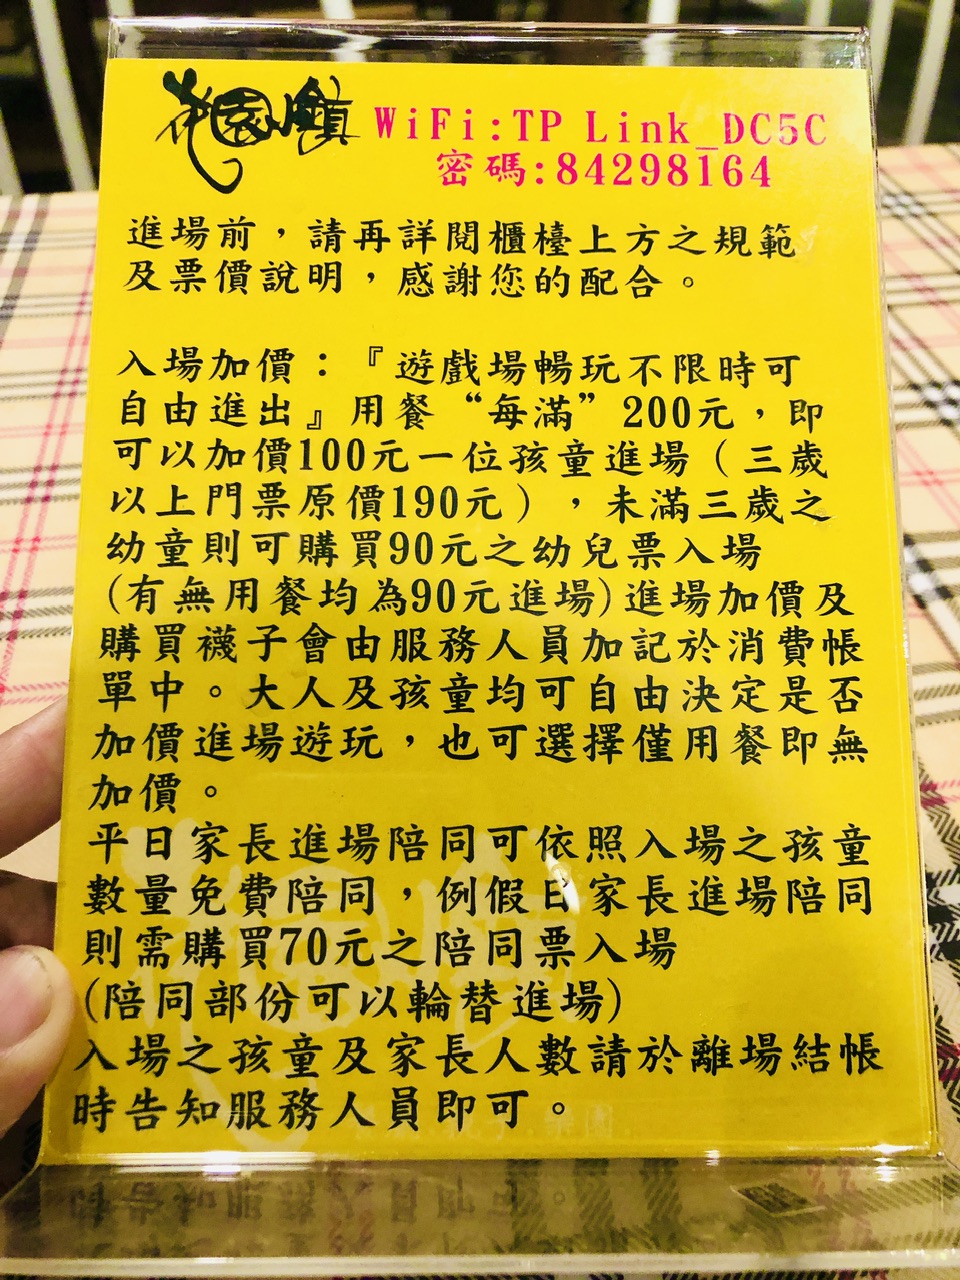 花園小鎮
WiFi:TP Link_DC5C
密碼:84298164
進場前，請再詳閱櫃檯上方之規範
及票價說明，感謝您的配合。
入場加價：『遊戲場暢玩不限時可
自由進出』用餐“每滿”200元，即
可以加價100元一位孩童進場（三歲
以上門票原價190元），未滿三歲之
幼童則可購買90元之幼兒票入場
(有無用餐均為90元進場)進場加價及
購買襪子會由服務人員加記於消費帳
單中。大人及孩童均可自由決定是否
加價進場遊玩，也可選擇僅用餐即無
加價。
平日家長進場陪同可依照入場之孩童
數量免費陪同，例假日家長進場陪同
則需購買70元之陪同票入場
(陪同部份可以輪替進場)
入場之孩童及家長人數請於離場結帳
時告知服務人員即可。